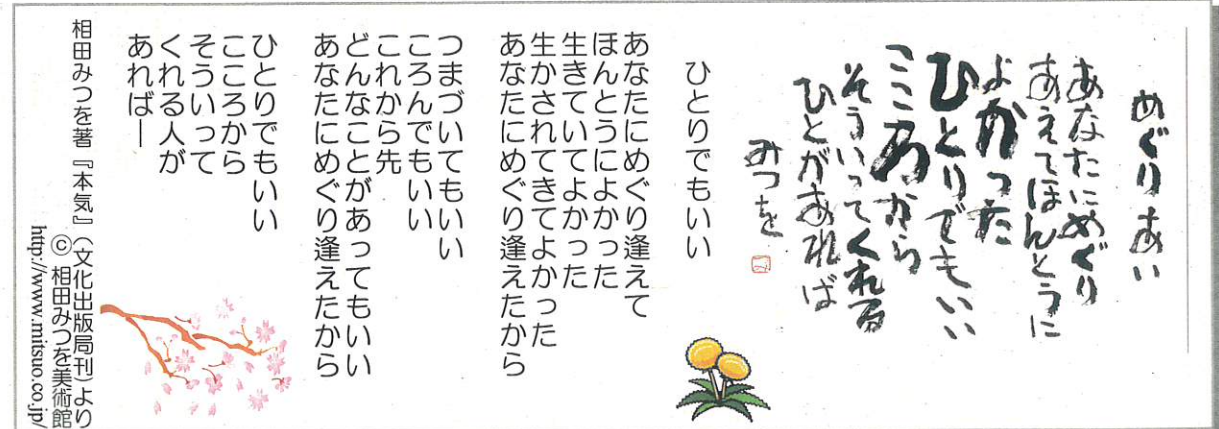 めぐりあい
あなたにめぐり
あえてほんとうに
よかった
ひとりでもいい
こころから
そういってくれる
ひとがあれば
みつを
ひとりでもいい
あなたにめぐり逢えて
ほんとうによかった
生きていてよかった
生かされてきてよかった
あなたにめぐり逢えたから
つまづいてもいい
ころんでもいい
これから先
どんなことがあってもいい
あなたにめぐり逢えたから
ひとりでもいい
こころから
そういって
くれる人が
あれば―
相田みつを著『本気』(文化出版局刊)より
© 相田みつを美術館
http://www.mitsuo.co.jp/